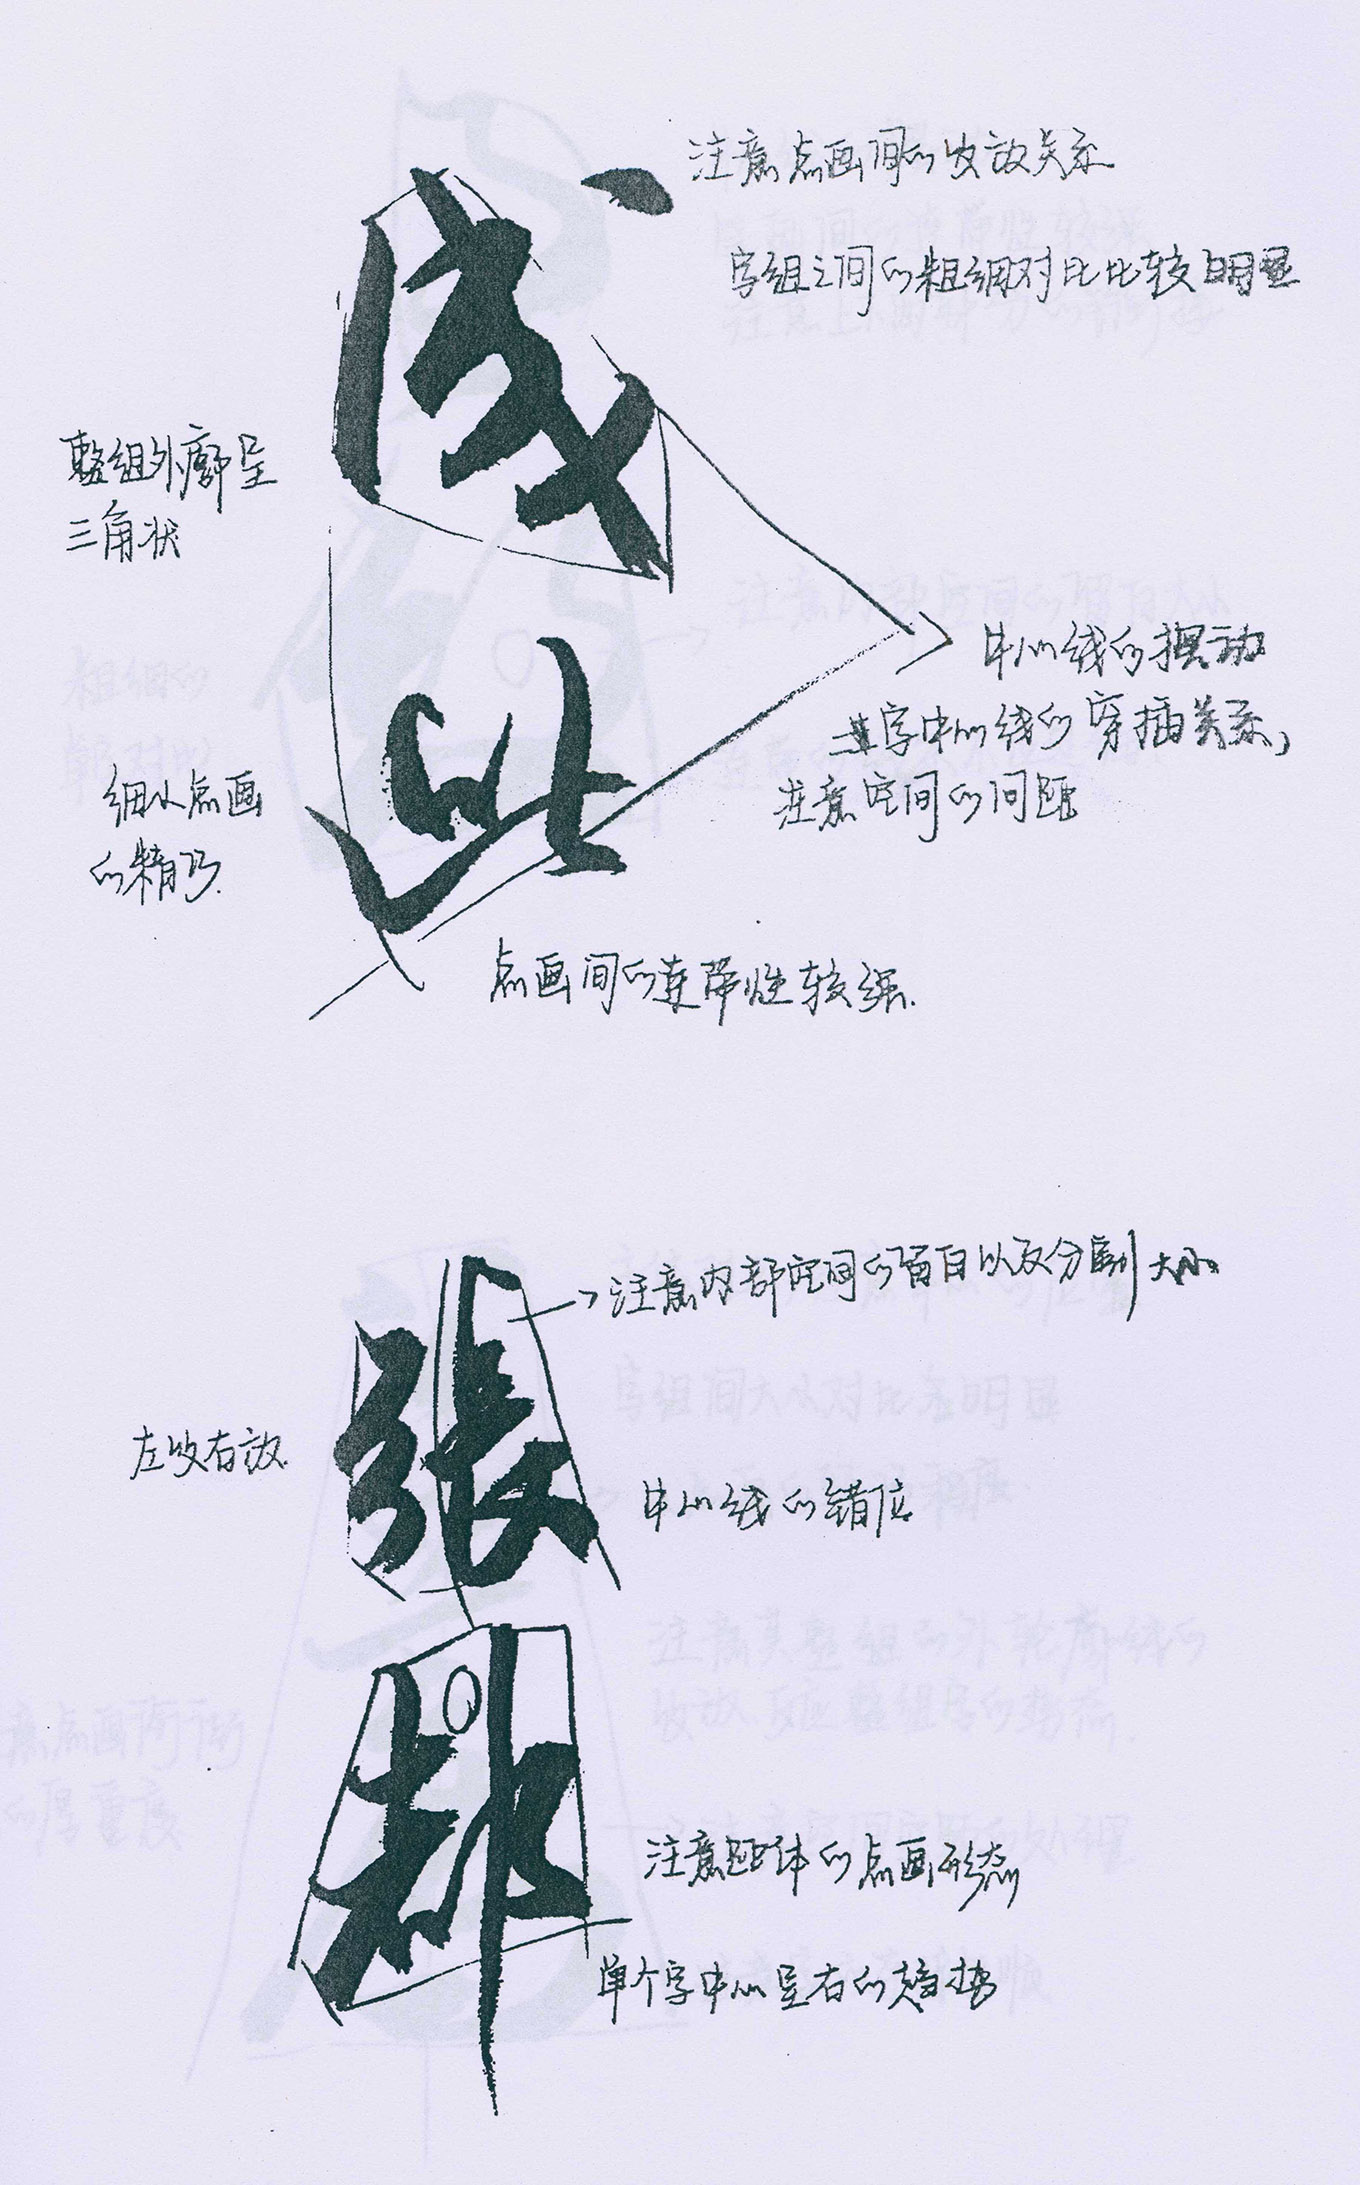 注意点画间的收放关系
字组之间的粗细对比比较明显
成
整组外廓呈
三角状
中心线的摆动
字中心线的穿插关系,
注意空间的问题
此
细小点画
的精巧.
点画间的连带性较强.
注意内部空间的留白以及分割大小
張
左收右放.
中心线的错位
都
注意整体的点画形态
单个字中心呈右的趋势